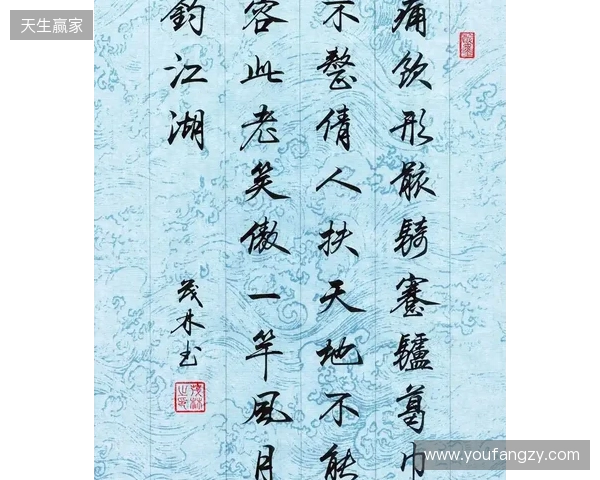 天生赢家
痛飲形骸騎蹇驢葛巾
不整倩人扶天地不能
容此老笑傲一竿風月
釣江湖
茂林书
www.youfangzy.com